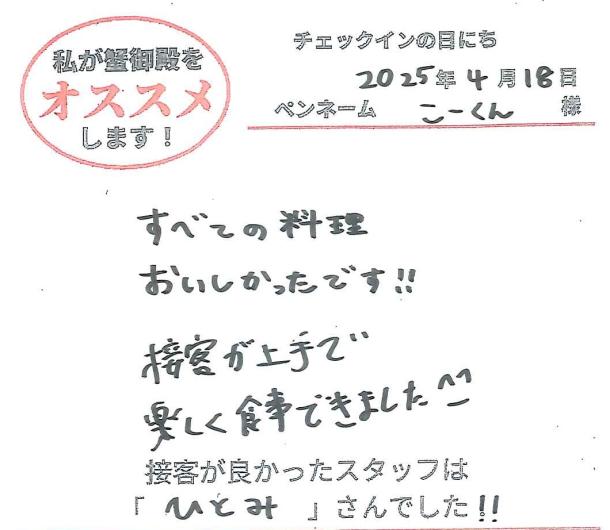 私が蟹御殿を
オススメ
します！
チェックインの日にち
2025年4月18日
ペンネーム こーくん 様
すべての料理
おいしかったです!!
接客が上手で
楽しく食事できました^^
接客が良かったスタッフは
「 ひとみ 」さんでした!!